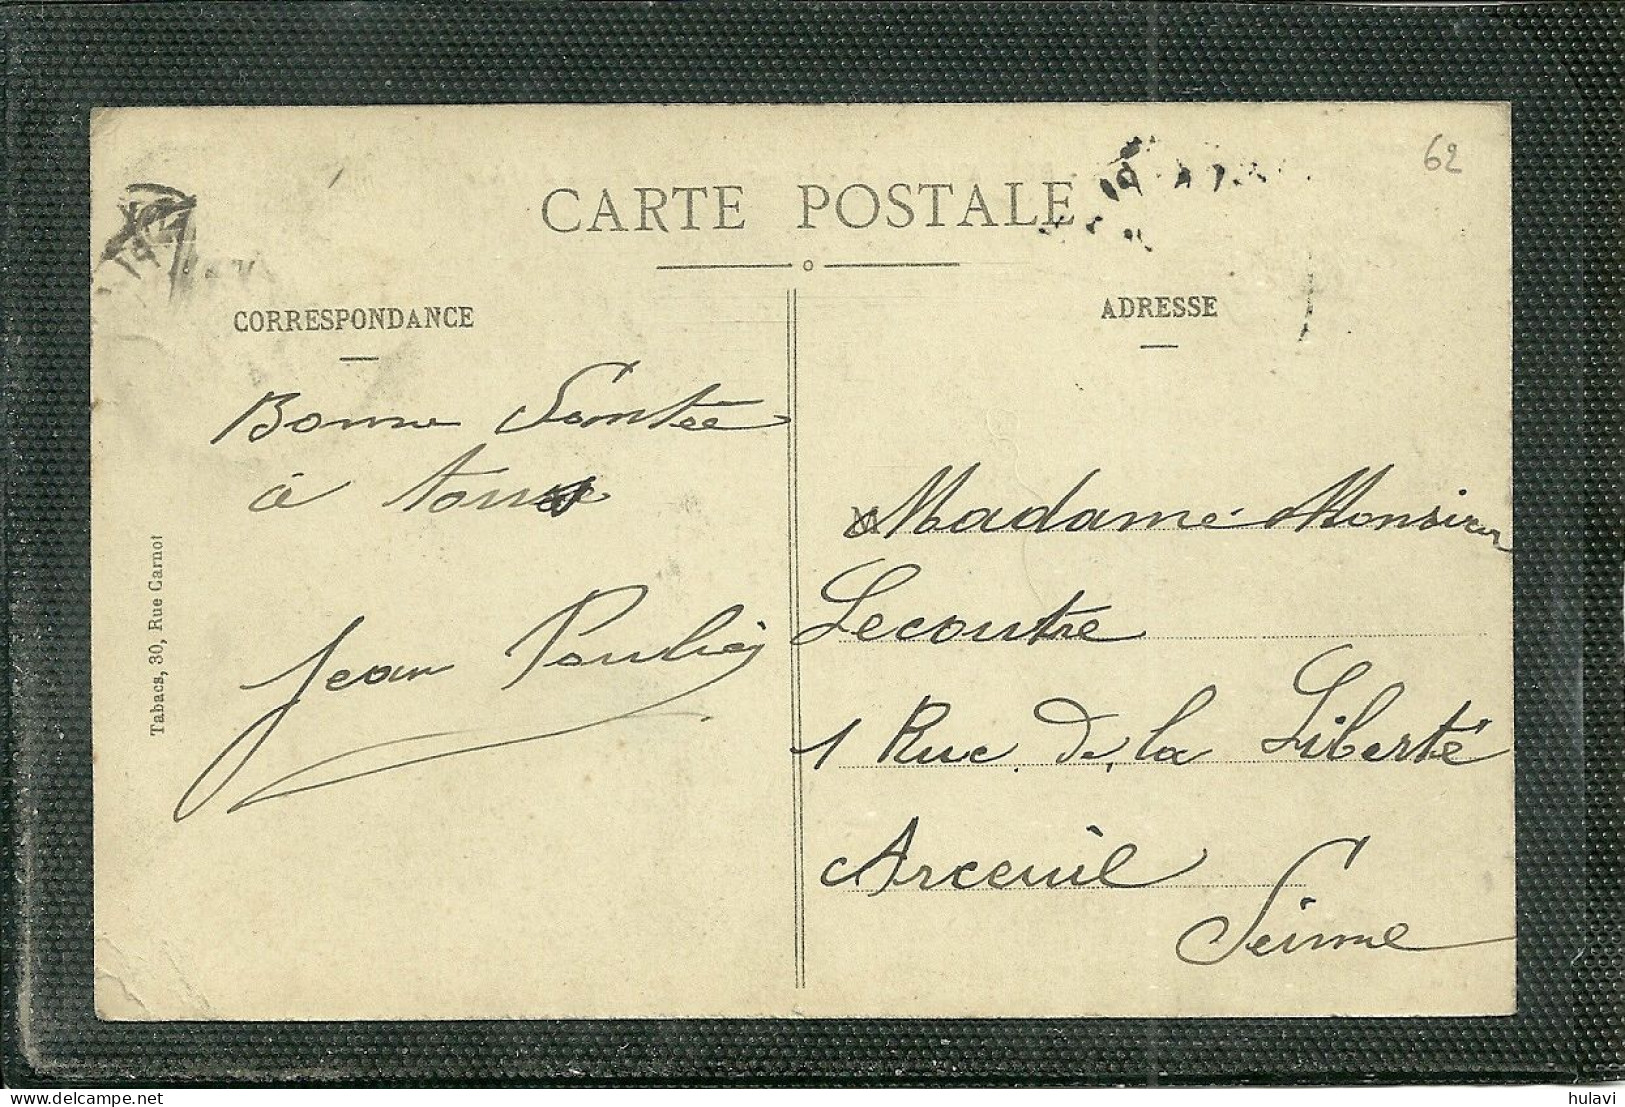 62
CARTE POSTALE
CORRESPONDANCE
ADRESSE
Bonne Santée
à tous
Jean
Tabacs, 30, Rue Carnot
Madame Monsieur
Lecoutre
1 Rue de la Liberté
Arceuil
Seine
hulavi